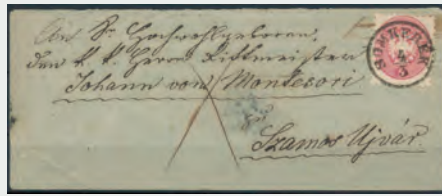 An Sr Hochwohlgeboren,
den k. k. Herrn Rittmeister
Johann von Montesori
Szamos Ujvár.
SOMKEREK
4/3